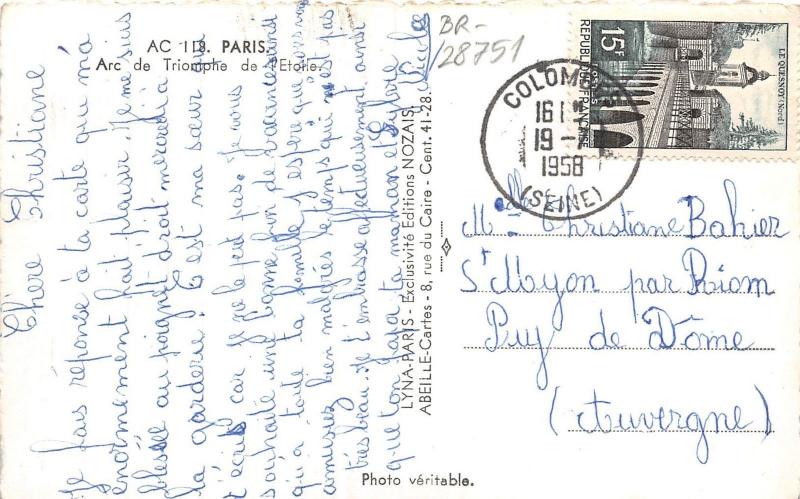 AC 118. PARIS.
Arc de Triomphe de l'Etoile.
BR-
28751
15F
REPUBLIQUE FRANÇAISE
POSTES
LE QUESNOY (Nord)
COLOMBES
16 H
19 -
1958
(SEINE)
Chère Christiane
Je fais réponse à ta carte qui m'a
énormement fait plaisir. Je me suis
blessée au poignet droit mercredi à
la garderie. C'est ma sœur qui
t'écris car je ne le peut pas. Je vous
souhaite une bonne fin de vacances ainsi
qu'a toute ta famille j'espère que vous vous
amusiez bien malgrés le temps qui n'est pas
très beau. Je t'embrasse affectueusement ainsi
que ton papa ta maman et Sylvie
LYNA-PARIS - Exclusivité Editions NOZAIS
ABEILLE-Cartes - 8, rue du Caire - Cent. 41-28.
Mlle Christiane Bahier
St Myon par Riom
Puy de Dôme
(Auvergne)
Photo véritable.